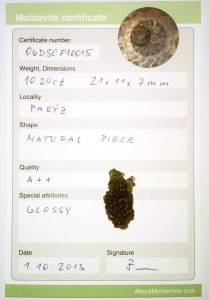 Moldavite certificate
Certificate number
06DSCF10015
Weight, Dimensions
10.20ct 21 x 11 x 7mm
Locality
PAŘÍZ
Shape
NATURAL PIECE
Quality
A++
Special attributes
GLOSSY
Date
Signature
1.10.2013
AboutMoldavites.com